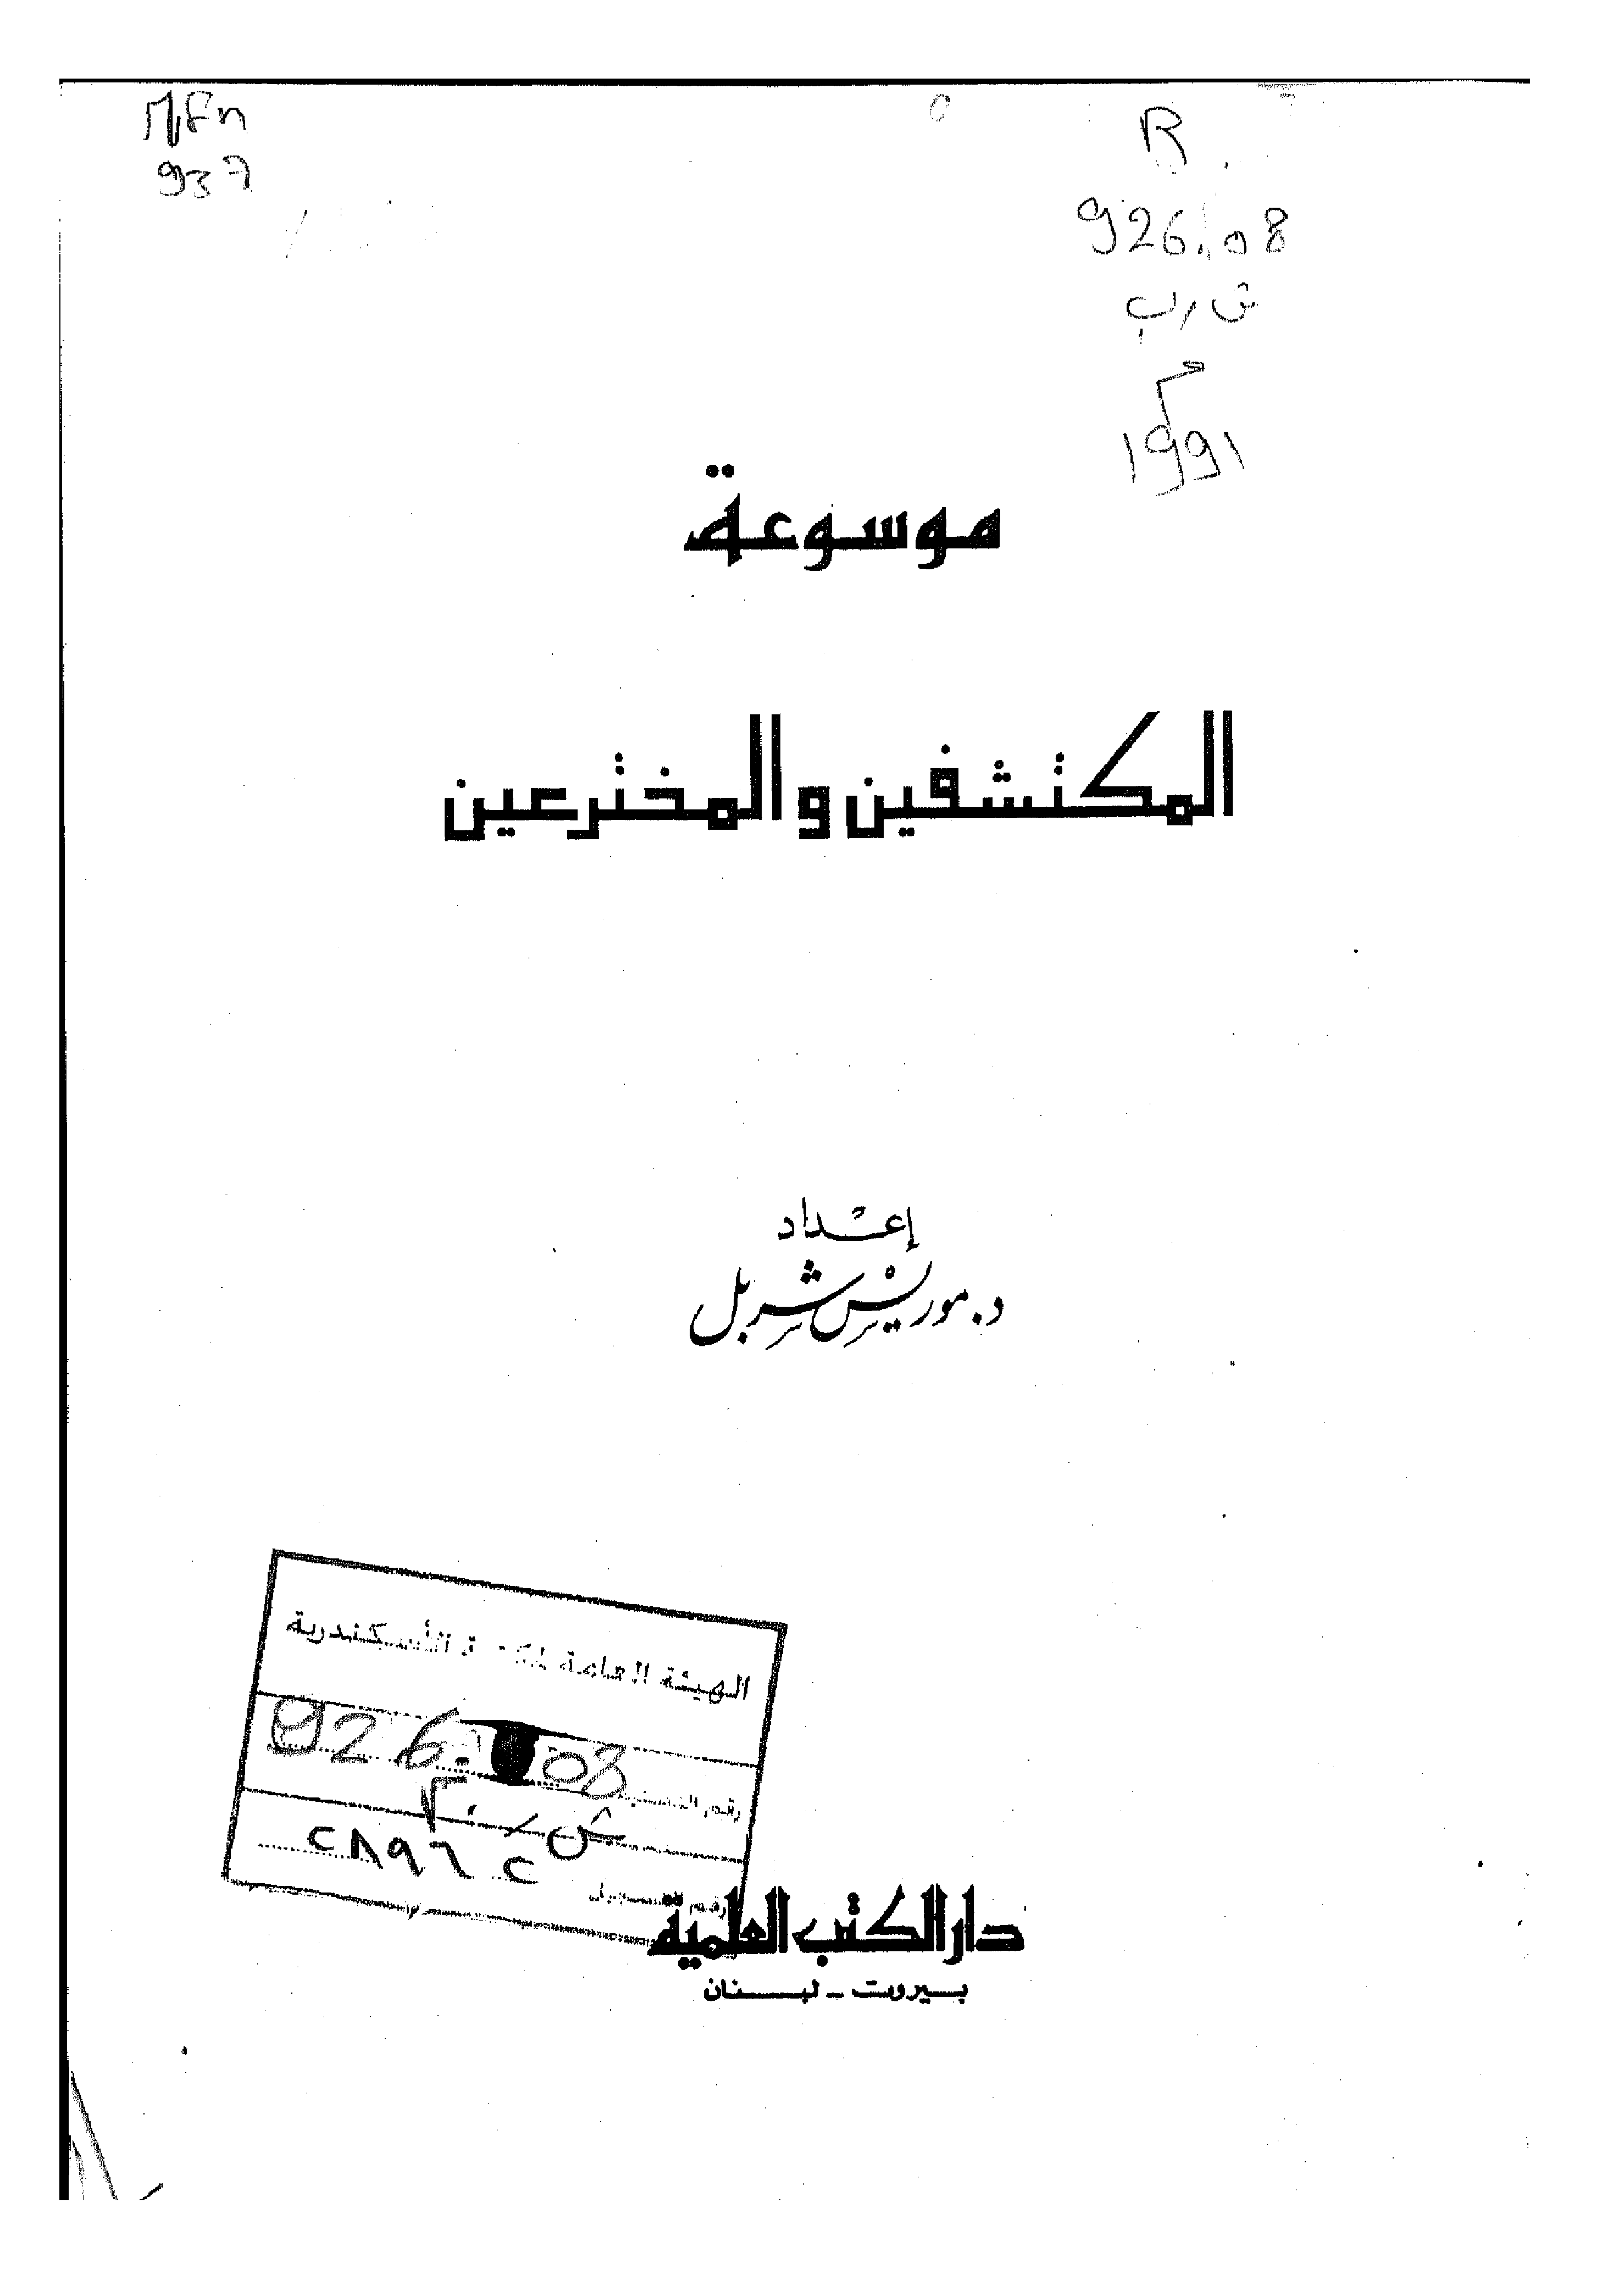 Mfn
937
R
926.08
ش ر ب
م
1991
موسوعة
المكتشفين والمخترعين
إعداد
د. موريس شربل
الهيئة العامة الأسكندرية
926.08
رقم
ش / م
رقم التسجيل ٢٨٩٦٢
دار الكتب العلمية
بيروت - لبنان